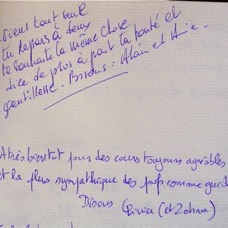 viens tout seul
tu repars à deux
te souhaite la même chose
dire de plus à part ta bonté et
gentillesse. Bisous. Alain et
A très bientôt pour des cours toujours agréables
et le plus sympathique des profs comme guide
Bisous (et Zohra)